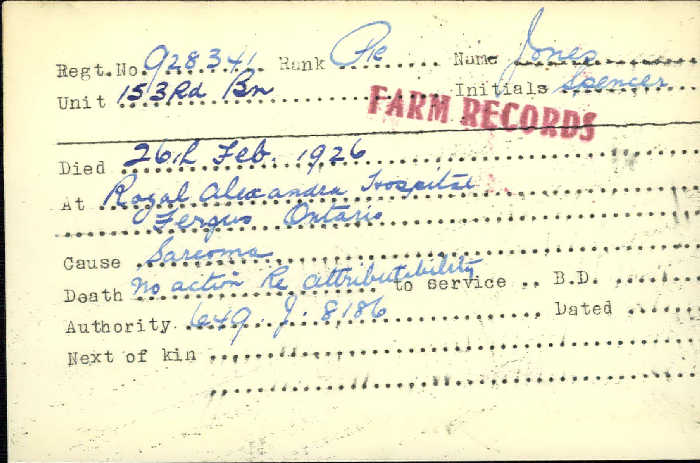 Regt.No. 928341 Rank Pte Name Jones
Unit 153rd Bn Initials Spencer
FARM RECORDS
Died 26th Feb. 1926
At Royal Alexandra Hospital
Fergus Ontario
Cause Sarcoma
Death No action Re attributibility to service .. B.D.
Authority 649. J. 8186 Dated
Next of kin